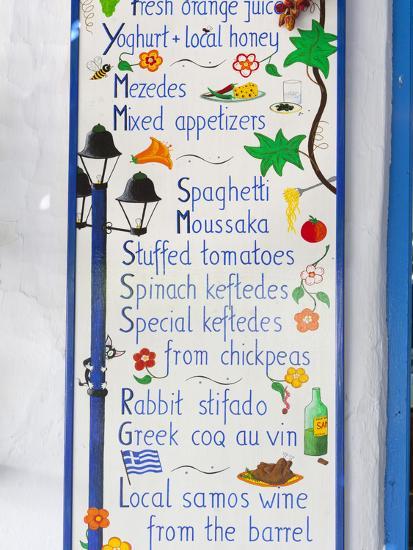 Fresh orange juice
Yoghurt + local honey
Mezedes
Mixed appetizers
Spaghetti
Moussaka
Stuffed tomatoes
Spinach keftedes
Special keftedes
from chickpeas
Rabbit stifado
Greek coq au vin
SAM
Local samos wine
from the barrel